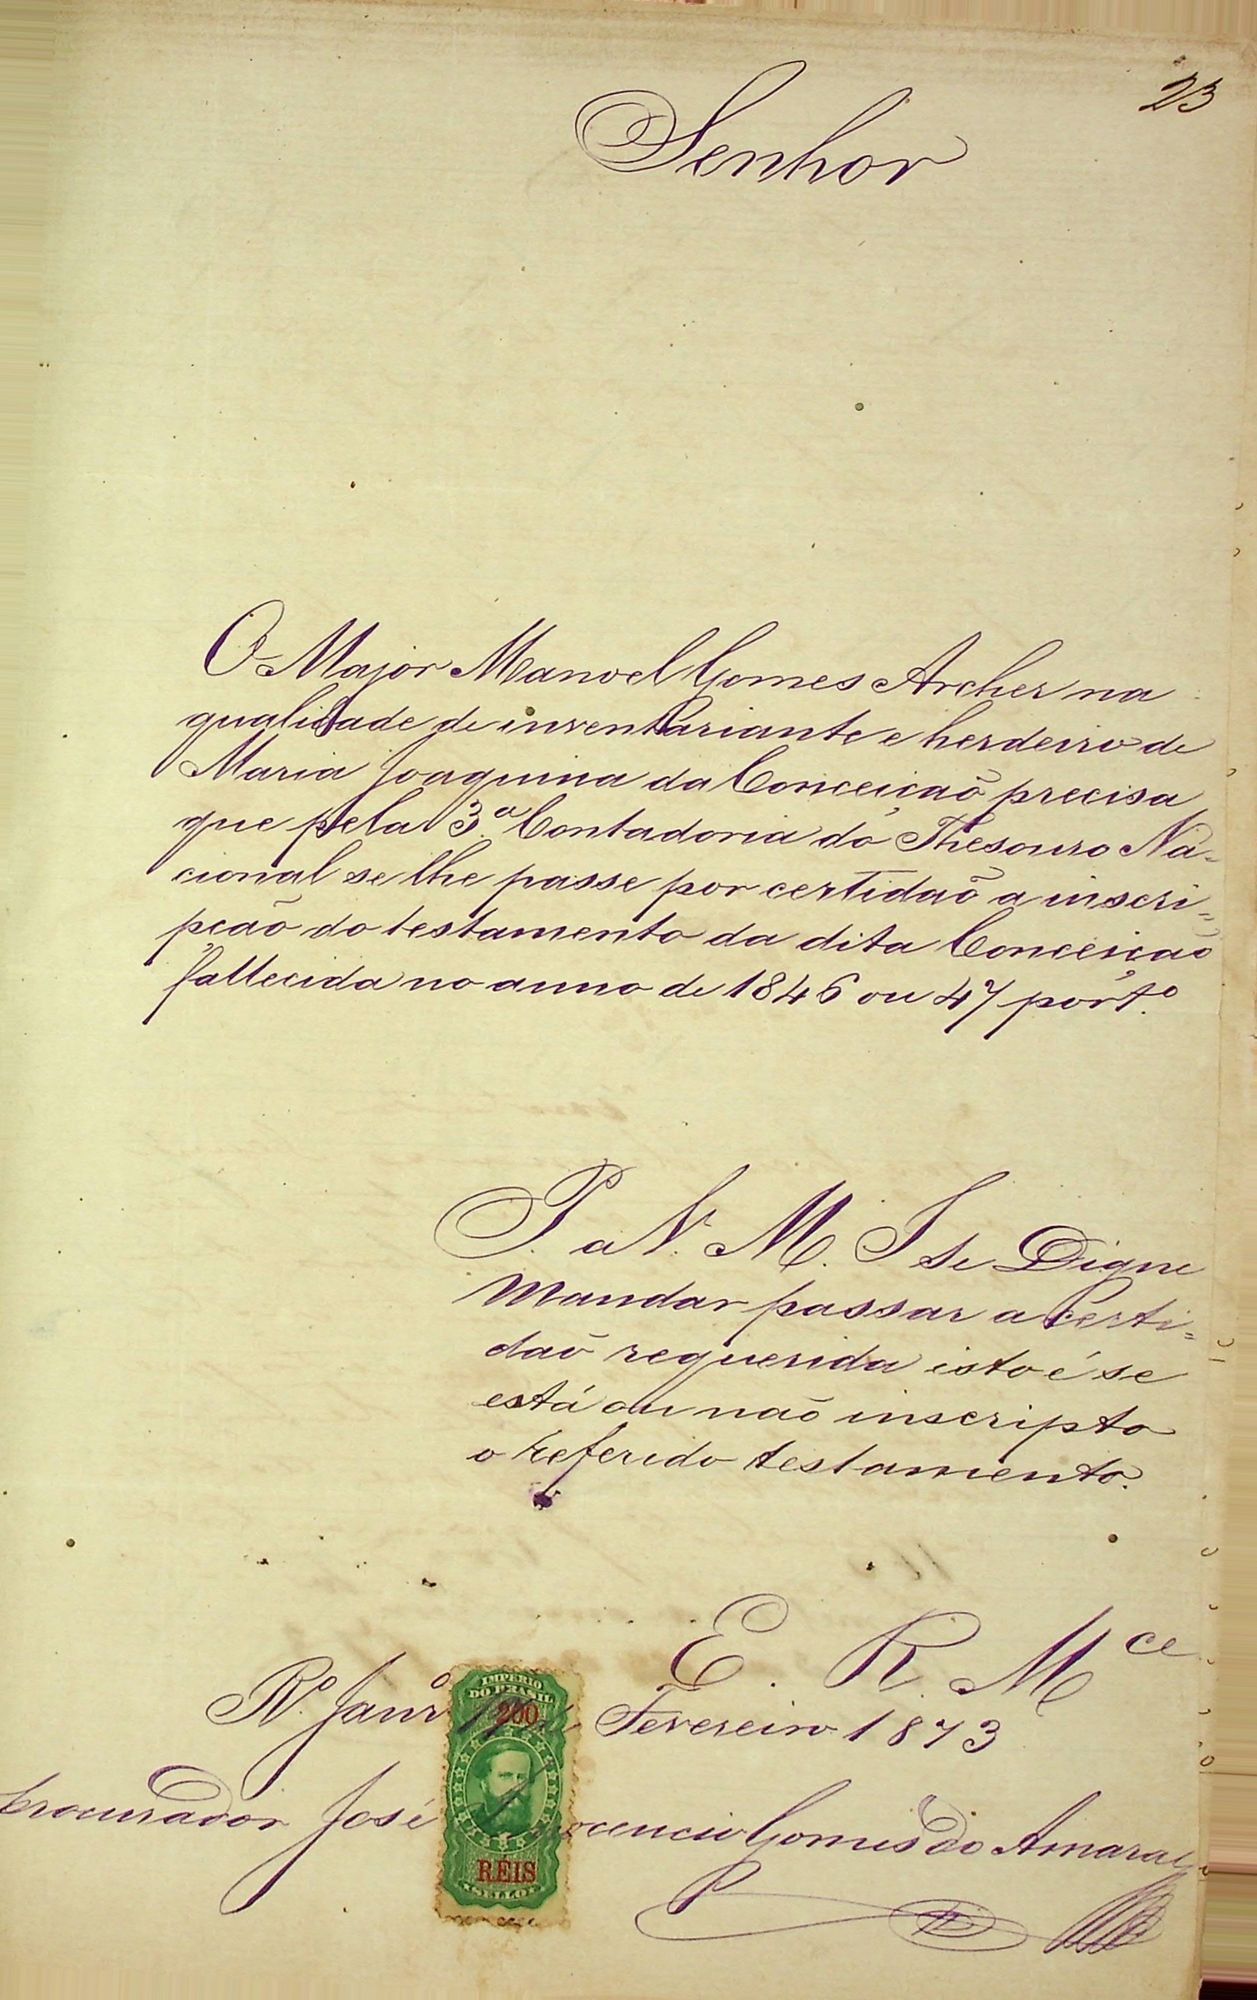 23
Senhor
O Major Manoel Gomes Archer na
qualidade de inventariante e herdeiro de
Maria Joaquina da Conceição precisa
que pela 3.ª Contadoria do Thesouro Na-
cional se lhe passe por certidão a inscri-
pção do testamento da dita Conceição
fallecida no anno de 1846 ou 47 port.º
P. a V. M. I se Digne
Mandar passar a Certi-
dão requerida isto é se
está ou não inscripto
o referido testamento.
E. R. M.ce
R.º Janr.º Fevereiro 1873
IMPERIO
DO BRASIL
200
RÉIS
SELLO
Procurador José Gomes do Amaral